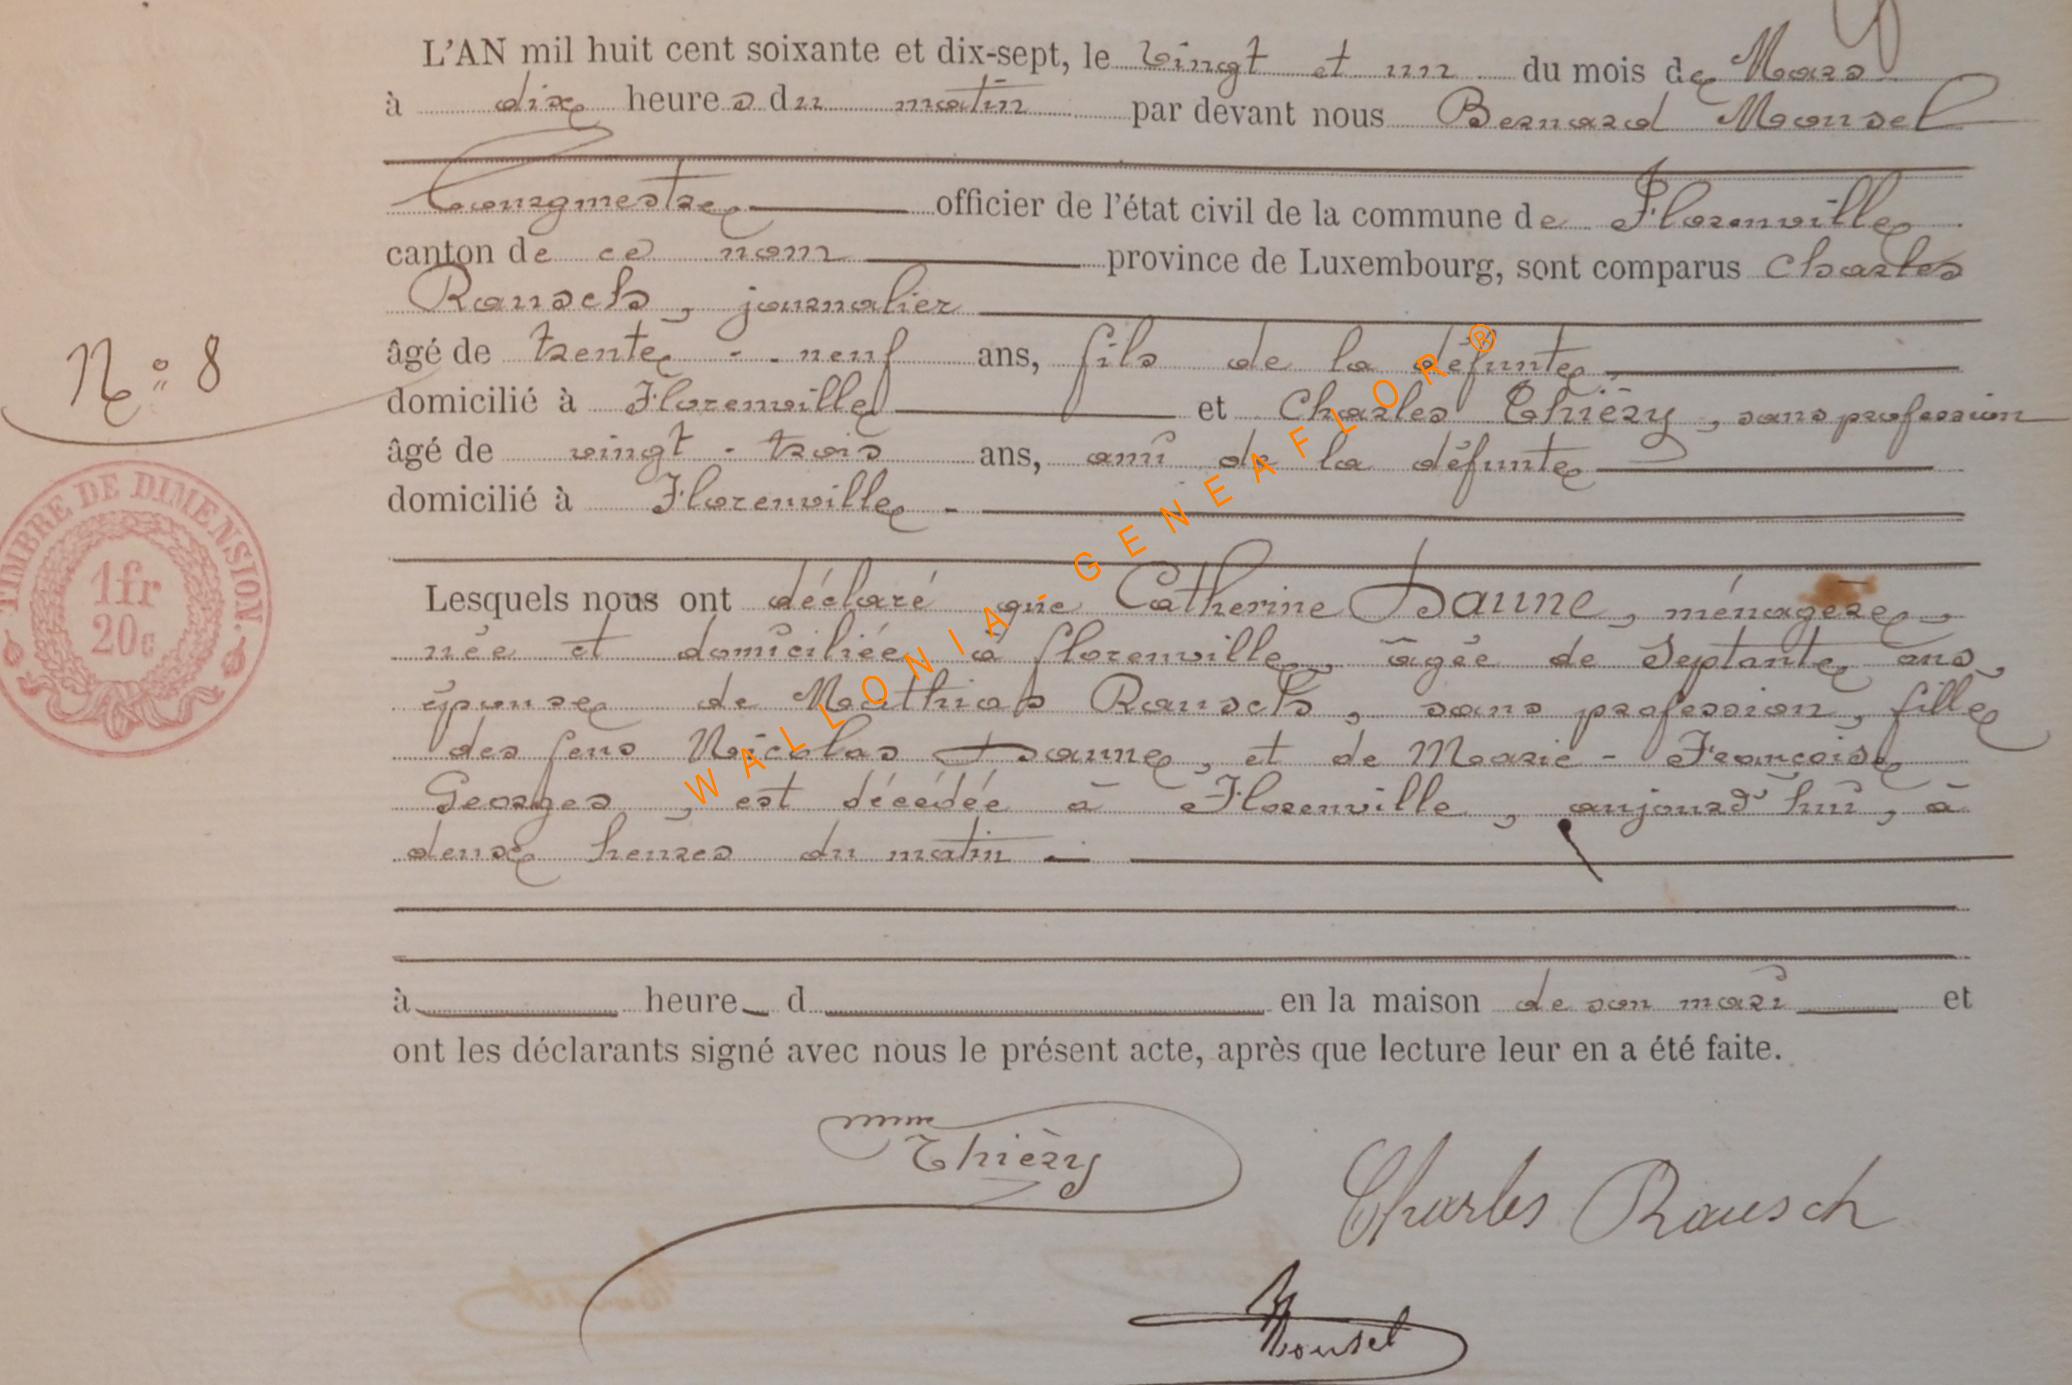 L'AN mil huit cent soixante et dix-sept, le vingt et un du mois de Mars
à dix heures du matin par devant nous Bernard Mousel
bourgmestre officier de l'état civil de la commune de Florenville
canton de ce nom province de Luxembourg, sont comparus Charles
Rausch, journalier
âgé de trente-neuf ans, fils de la défunte
N° 8
domicilié à Florenville et Charles Thiéry, sans profession
âgé de vingt-trois ans, ami de la défunte
domicilié à Florenville -
TIMBRE DE DIMENSION.
1fr
20c
Lesquels nous ont déclaré que Catherine Daune, ménagère,
née et domiciliée à Florenville, âgée de septante ans,
épouse de Mathias Rausch, sans profession, fille
des feus Nicolas Daune, et de Marie-Françoise
Georges, est décédée à Florenville, aujourd'hui, à
deux heures du matin -
à heure d en la maison de son mari et
ont les déclarants signé avec nous le présent acte, après que lecture leur en a été faite.
Thièry
Charles Rausch
Mousel
WALLONIA-GENEAFLOR®